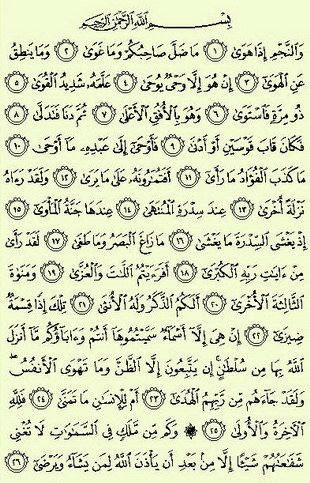 بِسْمِ اللَّهِ الرَّحْمَٰنِ الرَّحِيمِ
وَٱلنَّجْمِ إِذَا هَوَىٰ ١ مَا ضَلَّ صَاحِبُكُمْ وَمَا غَوَىٰ ٢ وَمَا يَنطِقُ
عَنِ ٱلْهَوَىٰٓ ٣ إِنْ هُوَ إِلَّا وَحْىٌ يُوحَىٰ ٤ عَلَّمَهُۥ شَدِيدُ ٱلْقُوَىٰ ٥
ذُو مِرَّةٍ فَٱسْتَوَىٰ ٦ وَهُوَ بِٱلْأُفُقِ ٱلْأَعْلَىٰ ٧ ثُمَّ دَنَا فَتَدَلَّىٰ ٨
فَكَانَ قَابَ قَوْسَيْنِ أَوْ أَدْنَىٰ ٩ فَأَوْحَىٰٓ إِلَىٰ عَبْدِهِۦ مَآ أَوْحَىٰ ١٠
مَا كَذَبَ ٱلْفُؤَادُ مَا رَأَىٰٓ ١١ أَفَتُمَٰرُونَهُۥ عَلَىٰ مَا يَرَىٰ ١٢ وَلَقَدْ رَءَاهُ
نَزْلَةً أُخْرَىٰ ١٣ عِندَ سِدْرَةِ ٱلْمُنتَهَىٰ ١٤ عِندَهَا جَنَّةُ ٱلْمَأْوَىٰٓ ١٥
إِذْ يَغْشَى ٱلسِّدْرَةَ مَا يَغْشَىٰ ١٦ مَا زَاغَ ٱلْبَصَرُ وَمَا طَغَىٰ ١٧ لَقَدْ رَأَىٰ
مِنْ ءَايَٰتِ رَبِّهِ ٱلْكُبْرَىٰٓ ١٨ أَفَرَءَيْتُمُ ٱللَّٰتَ وَٱلْعُزَّىٰ ١٩ وَمَنَوٰةَ
ٱلثَّالِثَةَ ٱلْأُخْرَىٰٓ ٢٠ أَلَكُمُ ٱلذَّكَرُ وَلَهُ ٱلْأُنثَىٰ ٢١ تِلْكَ إِذًا قِسْمَةٌ
ضِيزَىٰٓ ٢٢ إِنْ هِىَ إِلَّآ أَسْمَآءٌ سَمَّيْتُمُوهَآ أَنتُمْ وَءَابَآؤُكُم مَّآ أَنزَلَ
ٱللَّهُ بِهَا مِن سُلْطَٰنٍ ۚ إِن يَتَّبِعُونَ إِلَّا ٱلظَّنَّ وَمَا تَهْوَى ٱلْأَنفُسُ ۖ
وَلَقَدْ جَآءَهُم مِّن رَّبِّهِمُ ٱلْهُدَىٰٓ ٢٣ أَمْ لِلْإِنسَٰنِ مَا تَمَنَّىٰ ٢٤ فَلِلَّهِ
ٱلْءَاخِرَةُ وَٱلْأُولَىٰ ٢٥ ۞ وَكَم مِّن مَّلَكٍ فِى ٱلسَّمَٰوَٰتِ لَا تُغْنِى
شَفَٰعَتُهُمْ شَيْـًٔا إِلَّا مِنۢ بَعْدِ أَن يَأْذَنَ ٱللَّهُ لِمَن يَشَآءُ وَيَرْضَىٰٓ ٢٦